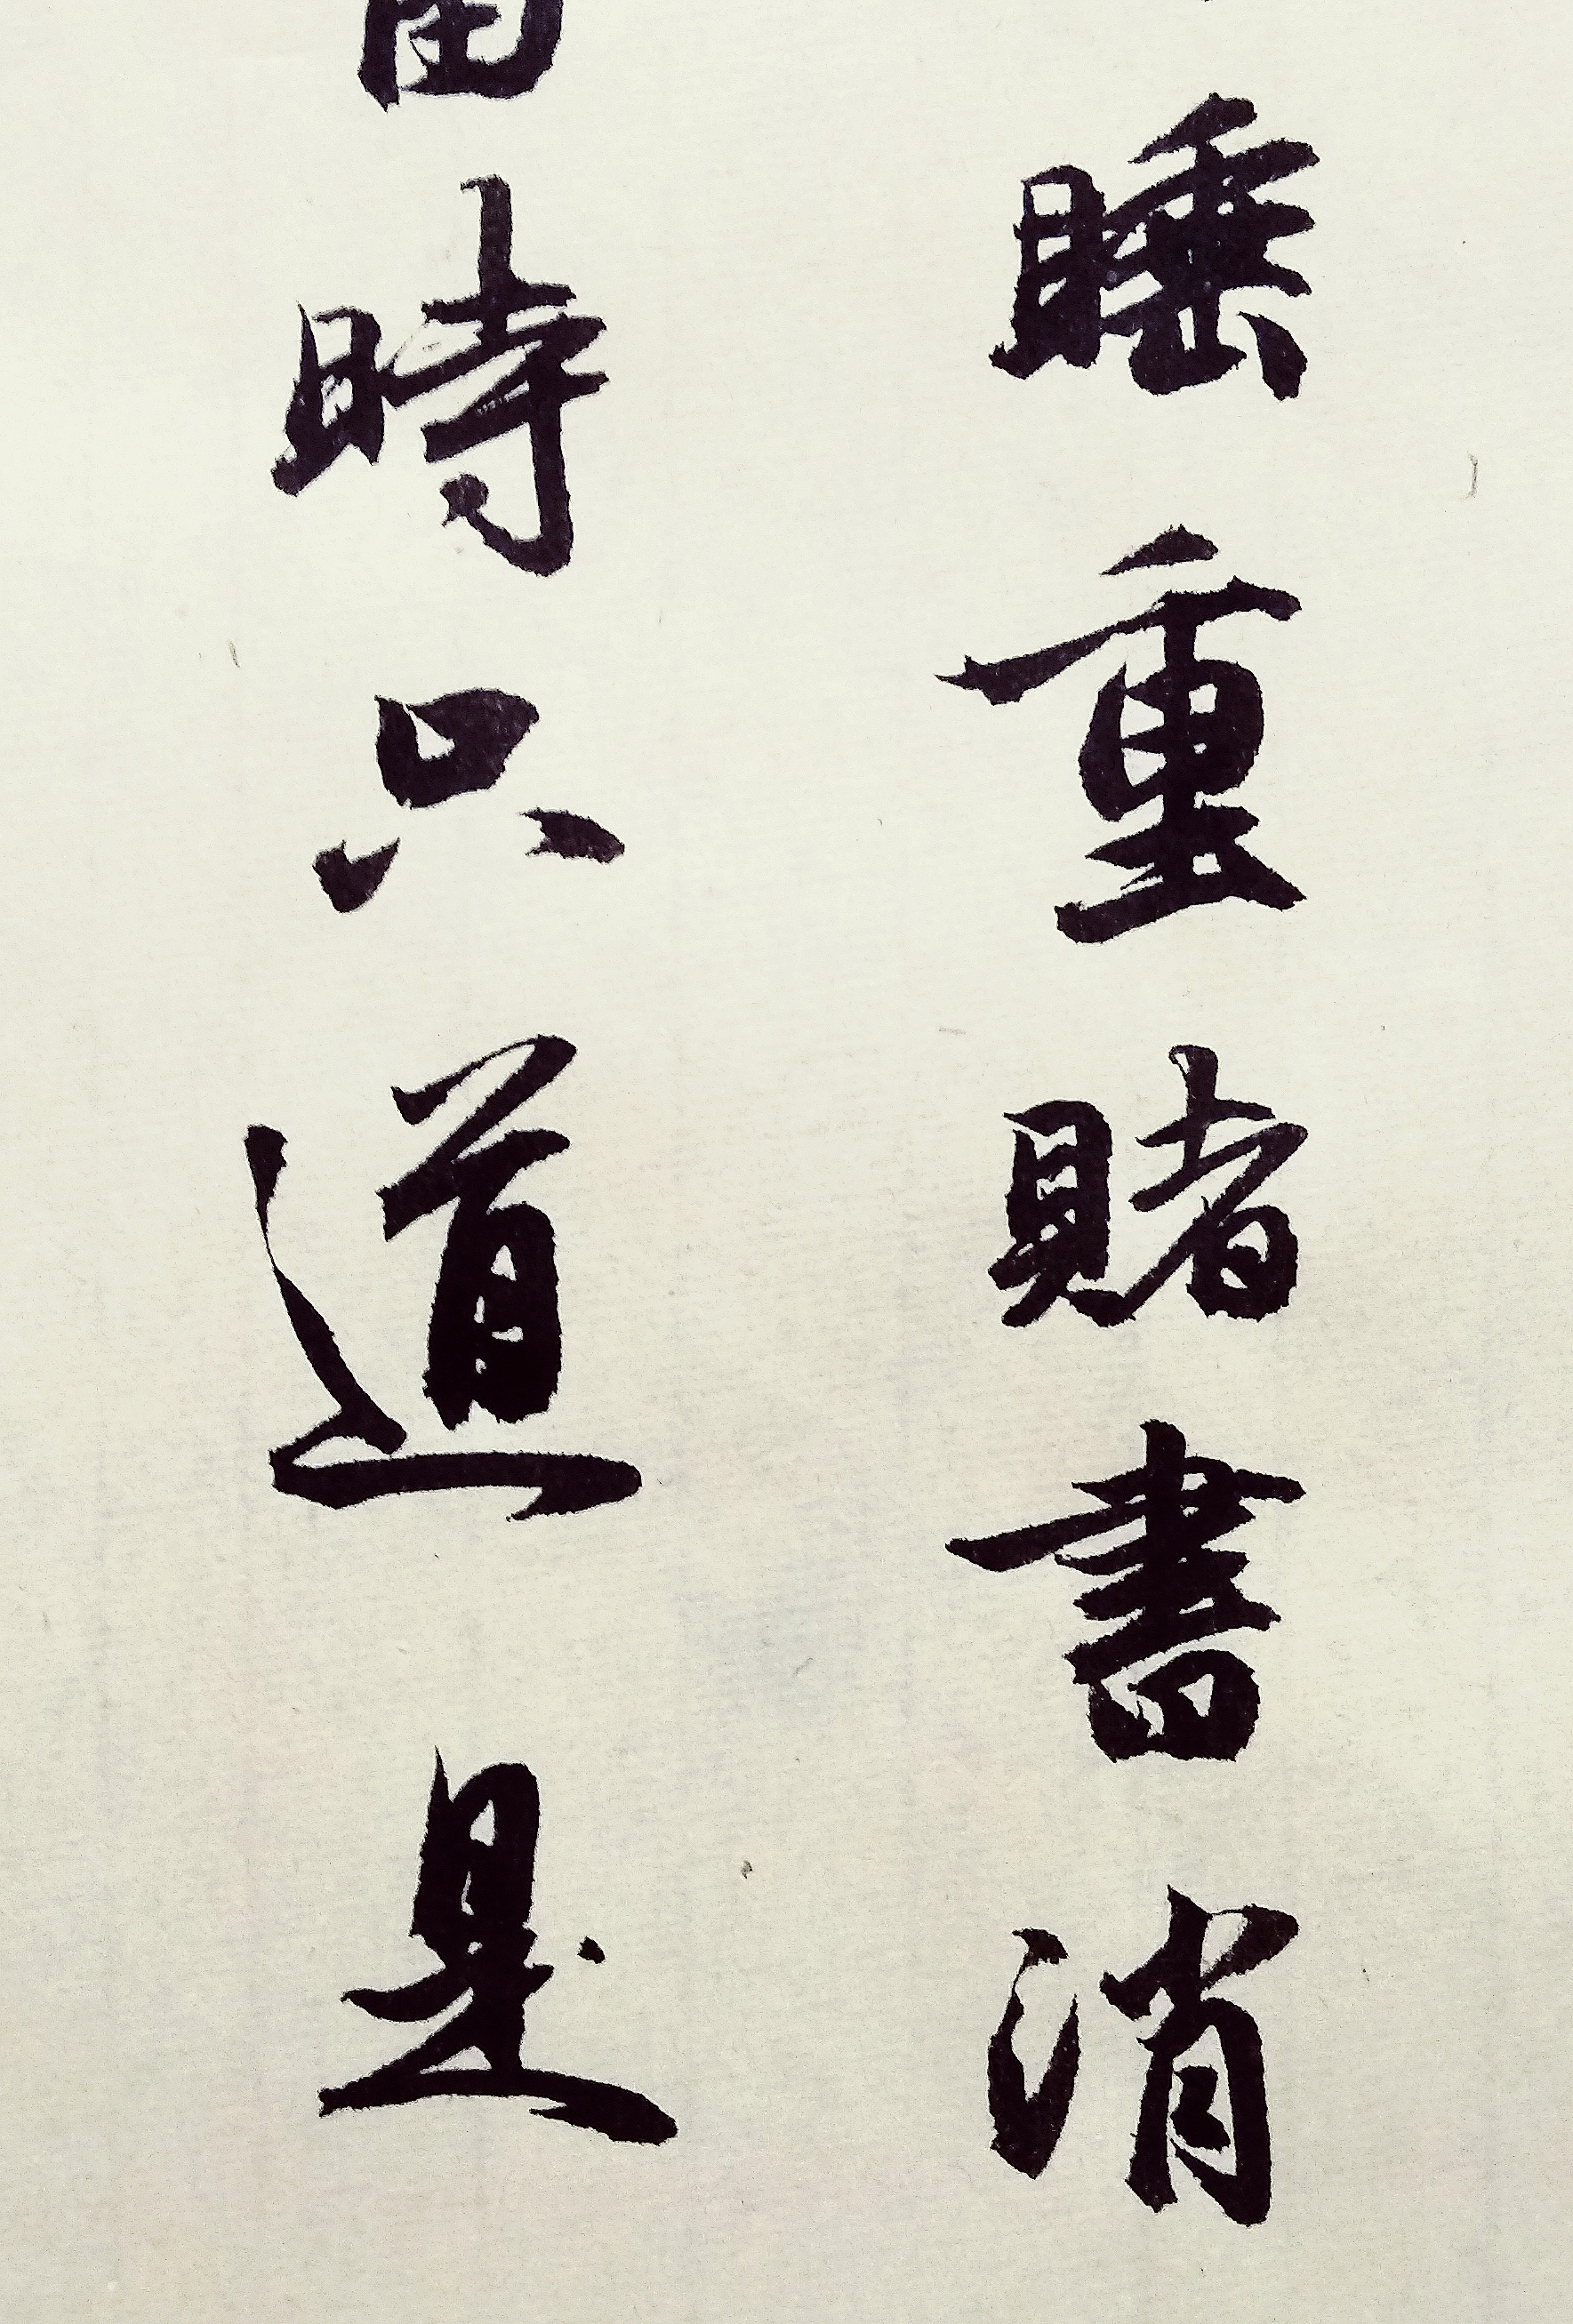 睡重賭書消
當時只道是